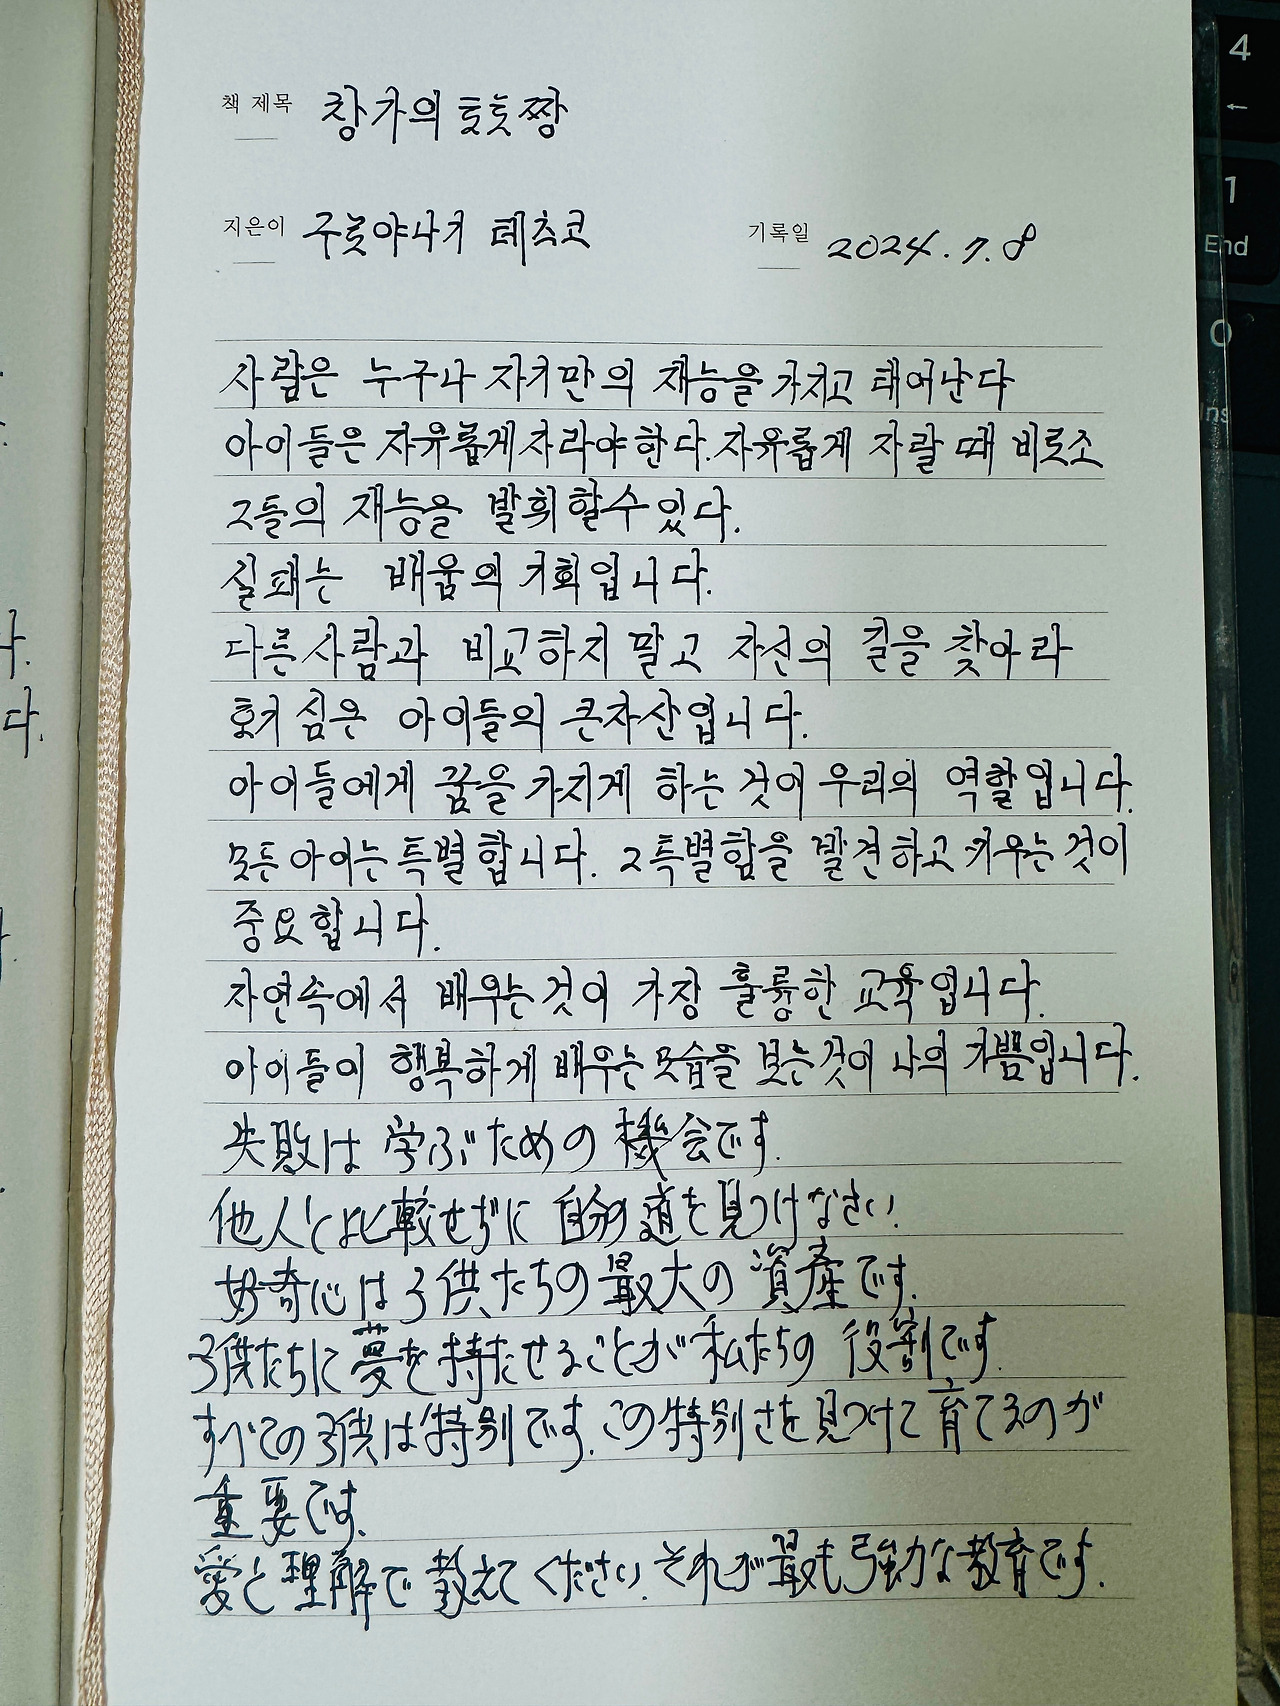 책 제목 창가의 토토짱
지은이 구로야나기 테츠코 기록일 2024.7.8
사람은 누구나 자기만의 재능을 가지고 태어난다
아이들은 자유롭게 자라야 한다. 자유롭게 자랄 때 비로소
그들의 재능을 발휘할 수 있다.
실패는 배움의 기회입니다.
다른 사람과 비교하지 말고 자신의 길을 찾아라
호기심은 아이들의 큰 자산입니다.
아이들에게 꿈을 가지게 하는 것이 우리의 역할입니다.
모든 아이는 특별합니다. 그 특별함을 발견하고 키우는 것이
중요합니다.
자연속에서 배우는 것이 가장 훌륭한 교육입니다.
아이들이 행복하게 배우는 모습을 보는 것이 나의 기쁨입니다.
失敗は 学ぶための 機会です.
他人と比較せずに 自分の道を見つけなさい.
好奇心は子供たちの最大の 資産です.
子供たちに夢を持たせることが私たちの 役割です.
すべての子供は特別です. この特別さを見つけて育てるのが
重要です.
愛と理解で 教えてください. それが最も強力な教育です.
다.
4
1
End
0
Ins